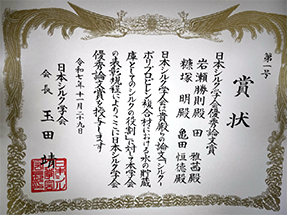 第一号
賞状
日本シルク学会優秀論文賞
岩瀬勝則殿 田 雅茜殿
糠塚 明殿 亀田恒徳殿
日本シルク学会は貴殿らの論文「シルク
ポリプロピレン複合材における水の貯蔵
庫としてのシルクの役割」に対て本学会
の表彰規程によりここに日本シルク学会
優秀論文賞を授与します
令和七年十一月二十九日
日本シルク学会
会長 玉田 靖